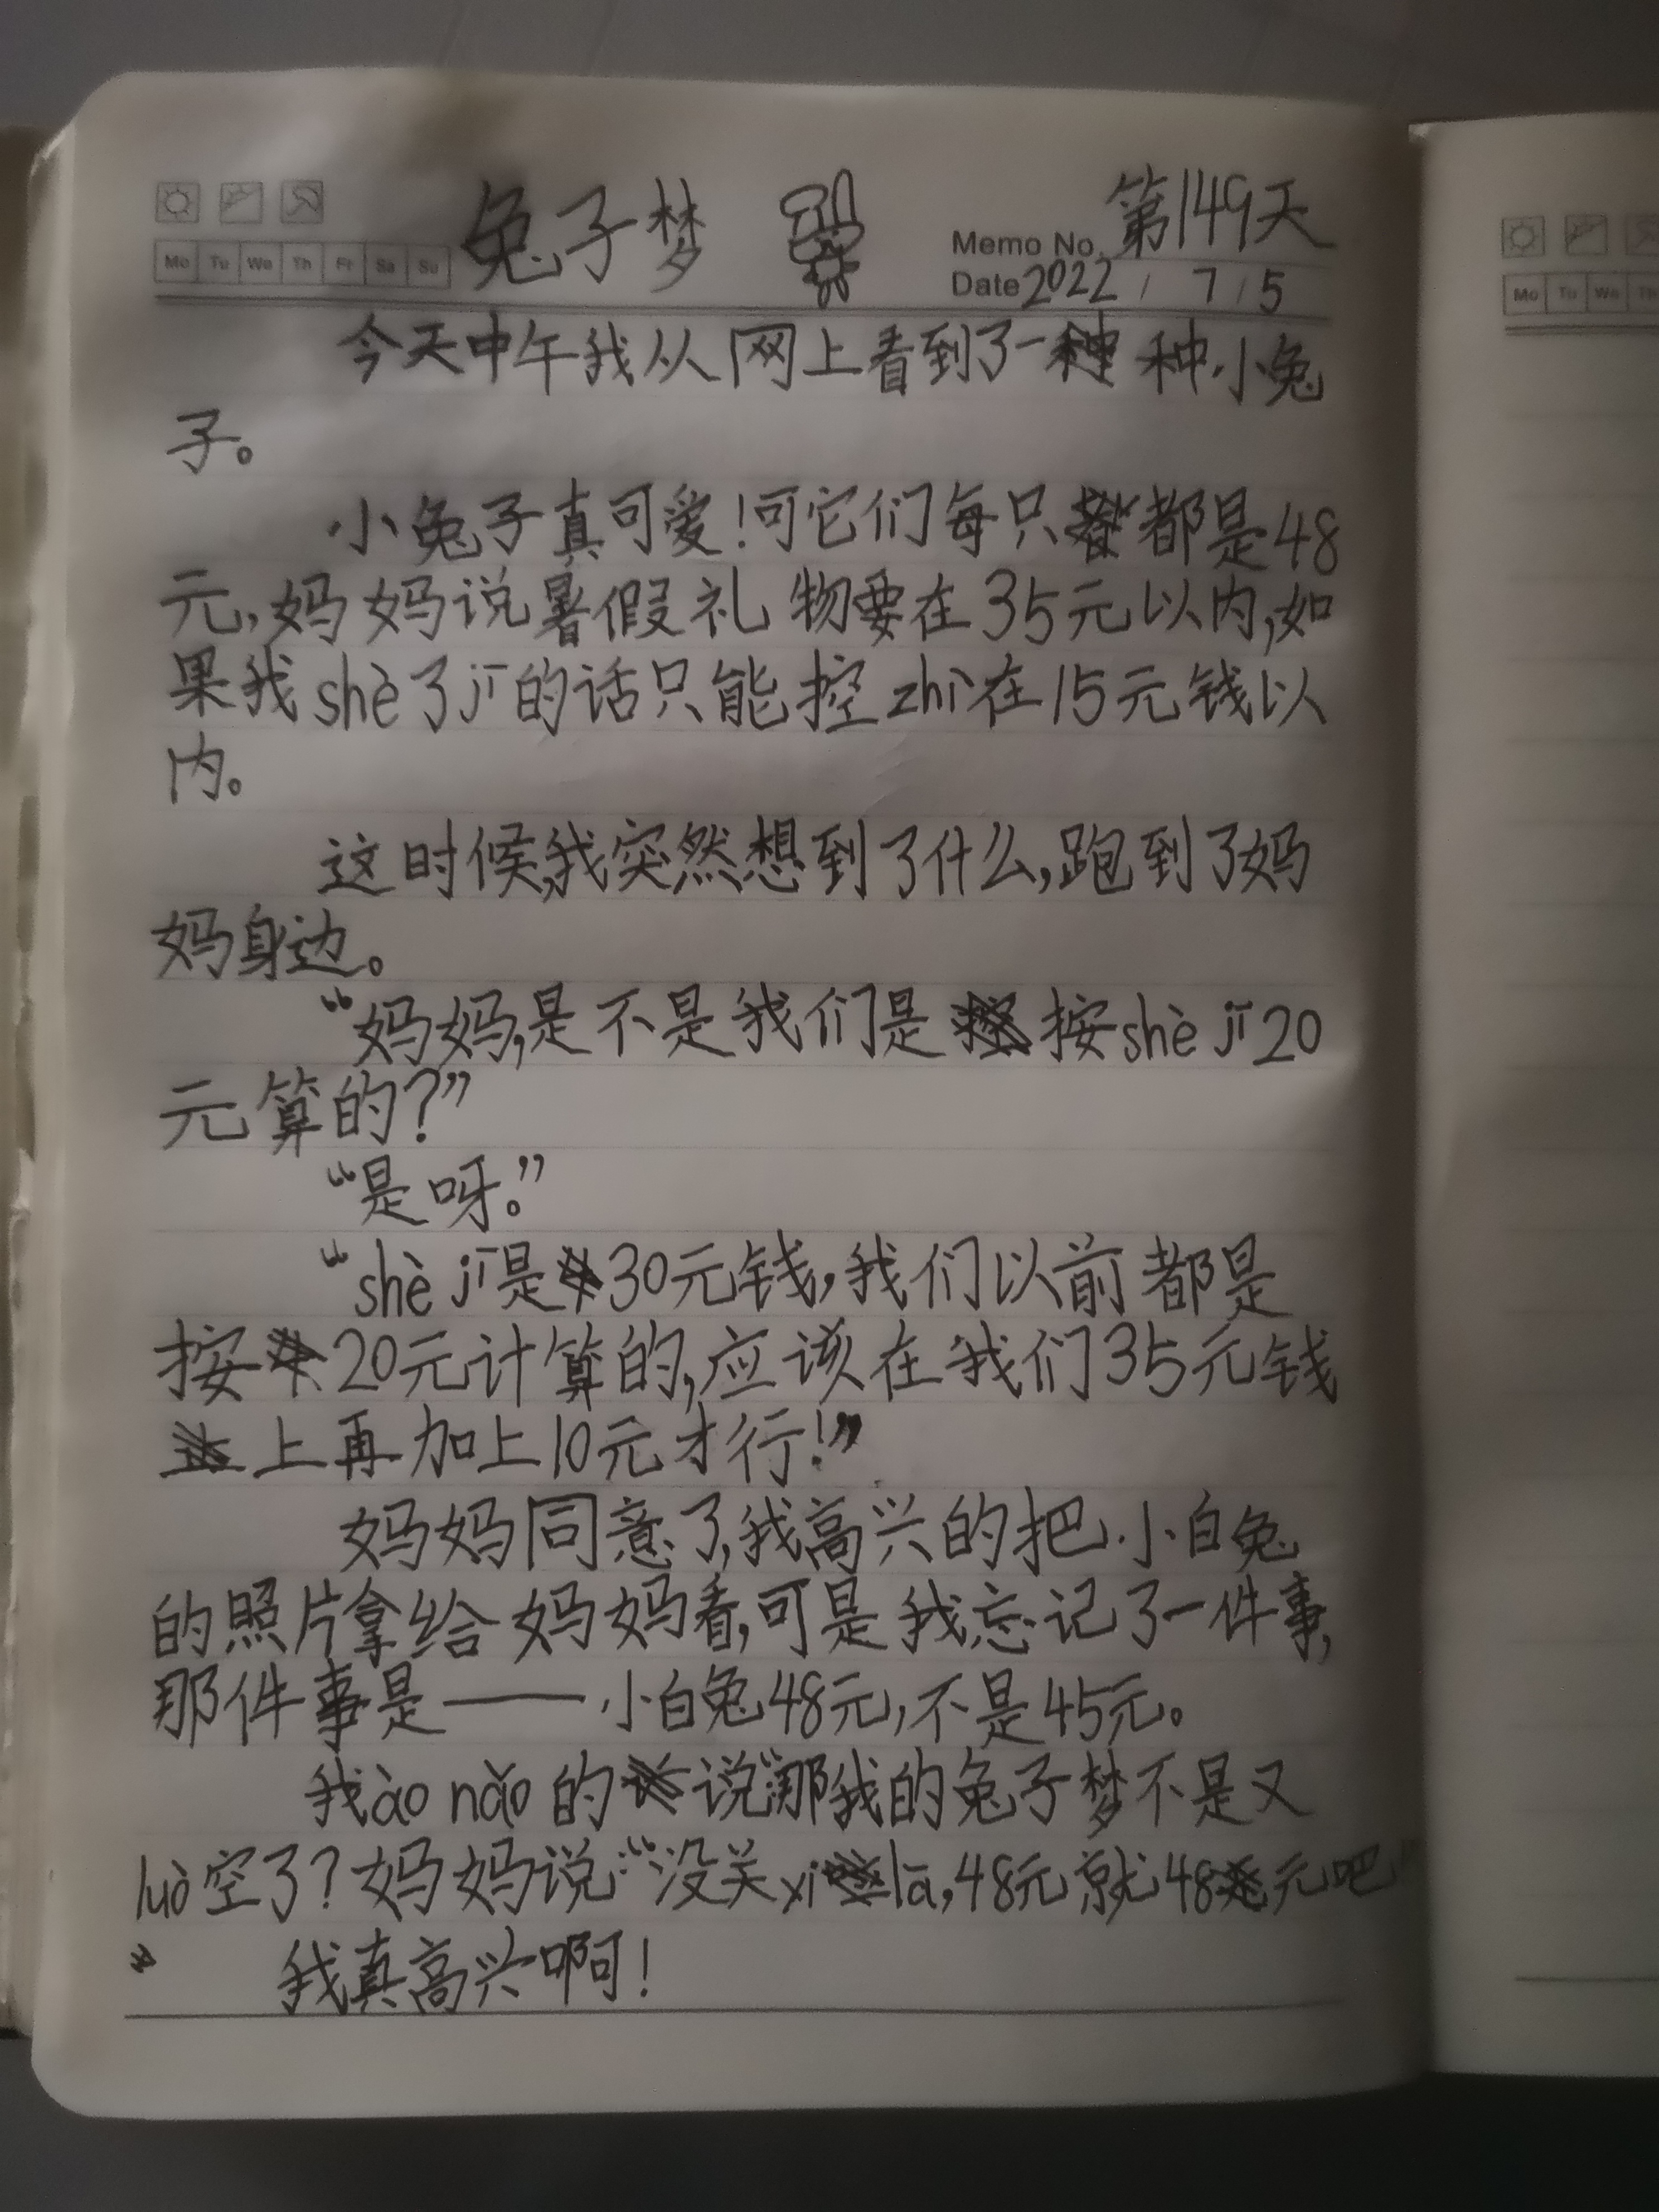 兔子梦
Memo No. 第149天
Mo Tu We Th Fr Sa Su
Date 2022 / 7 / 5
今天中午我从网上看到了一种小兔
子。
小兔子真可爱!可它们每只都是48
元,妈妈说暑假礼物要在35元以内,如
果我shè了jī的话只能控zhì在15元钱以
内。
这时候,我突然想到了什么,跑到了妈
妈身边。
“妈妈,是不是我们是按shè jī20
元算的?”
“是呀。”
“shè jī是30元钱,我们以前都是
按20元计算的,应该在我们35元钱
上再加上10元才行!”
妈妈同意了,我高兴的把小白兔
的照片拿给妈妈看,可是我忘记了一件事,
那件事是——小白兔48元,不是45元。
我ào nǎo的说“那我的兔子梦不是又
luò空了?妈妈说:“没关xi lā,48元就48元吧
”我真高兴啊!
Mo Tu We Th